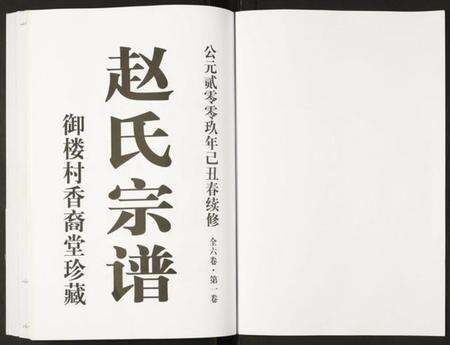 公元贰零零玖年己丑春续修
全六卷·第一卷
赵氏宗谱
御楼村香裔堂珍藏